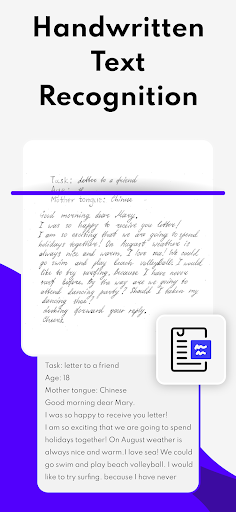 Handwritten
Text
Recognition
Task: letter to a friend
Age:
Mother tongue: Chinese
Good morning dear Mary.
I was so happy to receive you letter!
I am so exciting that we are going to spend
holidays together! On August weather is
always nice and warm. I love sea! We could
go swim and play beach volleyball. I would
like to try surfing, because I have never
surf before. By the way are we going to
attend dancing party? Should I taken my
dancing shoe?
Looking forward your reply.
Task: letter to a friend
Age: 18
Mother tongue: Chinese
Good morning dear Mary.
I was so happy to receive you letter!
I am so exciting that we are going to spend
holidays together! On August weather is
always nice and warm.I love sea! We could
go swim and play beach volleyball. I would
like to try surfing. because I have never